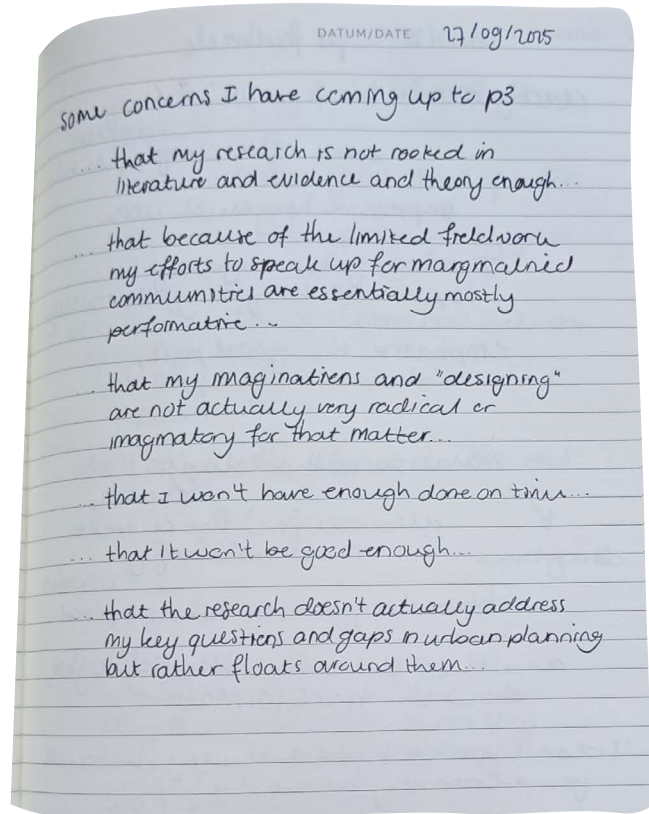 DATUM/DATE 27/09/2025
some concerns I have coming up to p3
... that my research is not rooked in
literature and evidence and theory enough...
... that because of the limited fieldwork
my efforts to speak up for marginalised
communities are essentially mostly
performative...
... that my imaginations and "designing"
are not actually very radical or
imaginatory for that matter...
... that I won't have enough done on time...
... that it won't be good enough...
... that the research doesn't actually address
my key questions and gaps in urban planning
but rather floats around them...